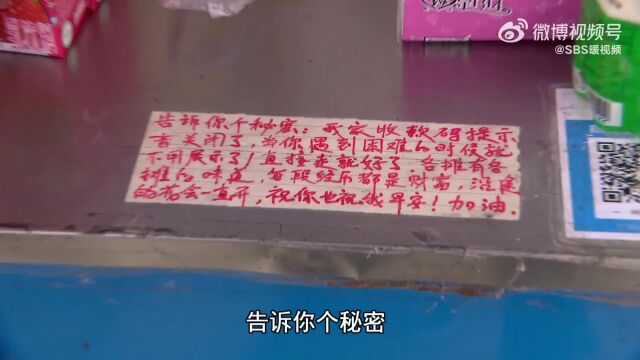 微博视频号
@SBS暖视频
告诉你个秘密：我家收款码提示
音关闭了，当你遇到困难的时候就
不用展示了，直接走就好了 各摊有各
摊的味道，每段经历都是财富，沿途
的花会一直开，祝你也祝我早安！加油.
告诉你个秘密